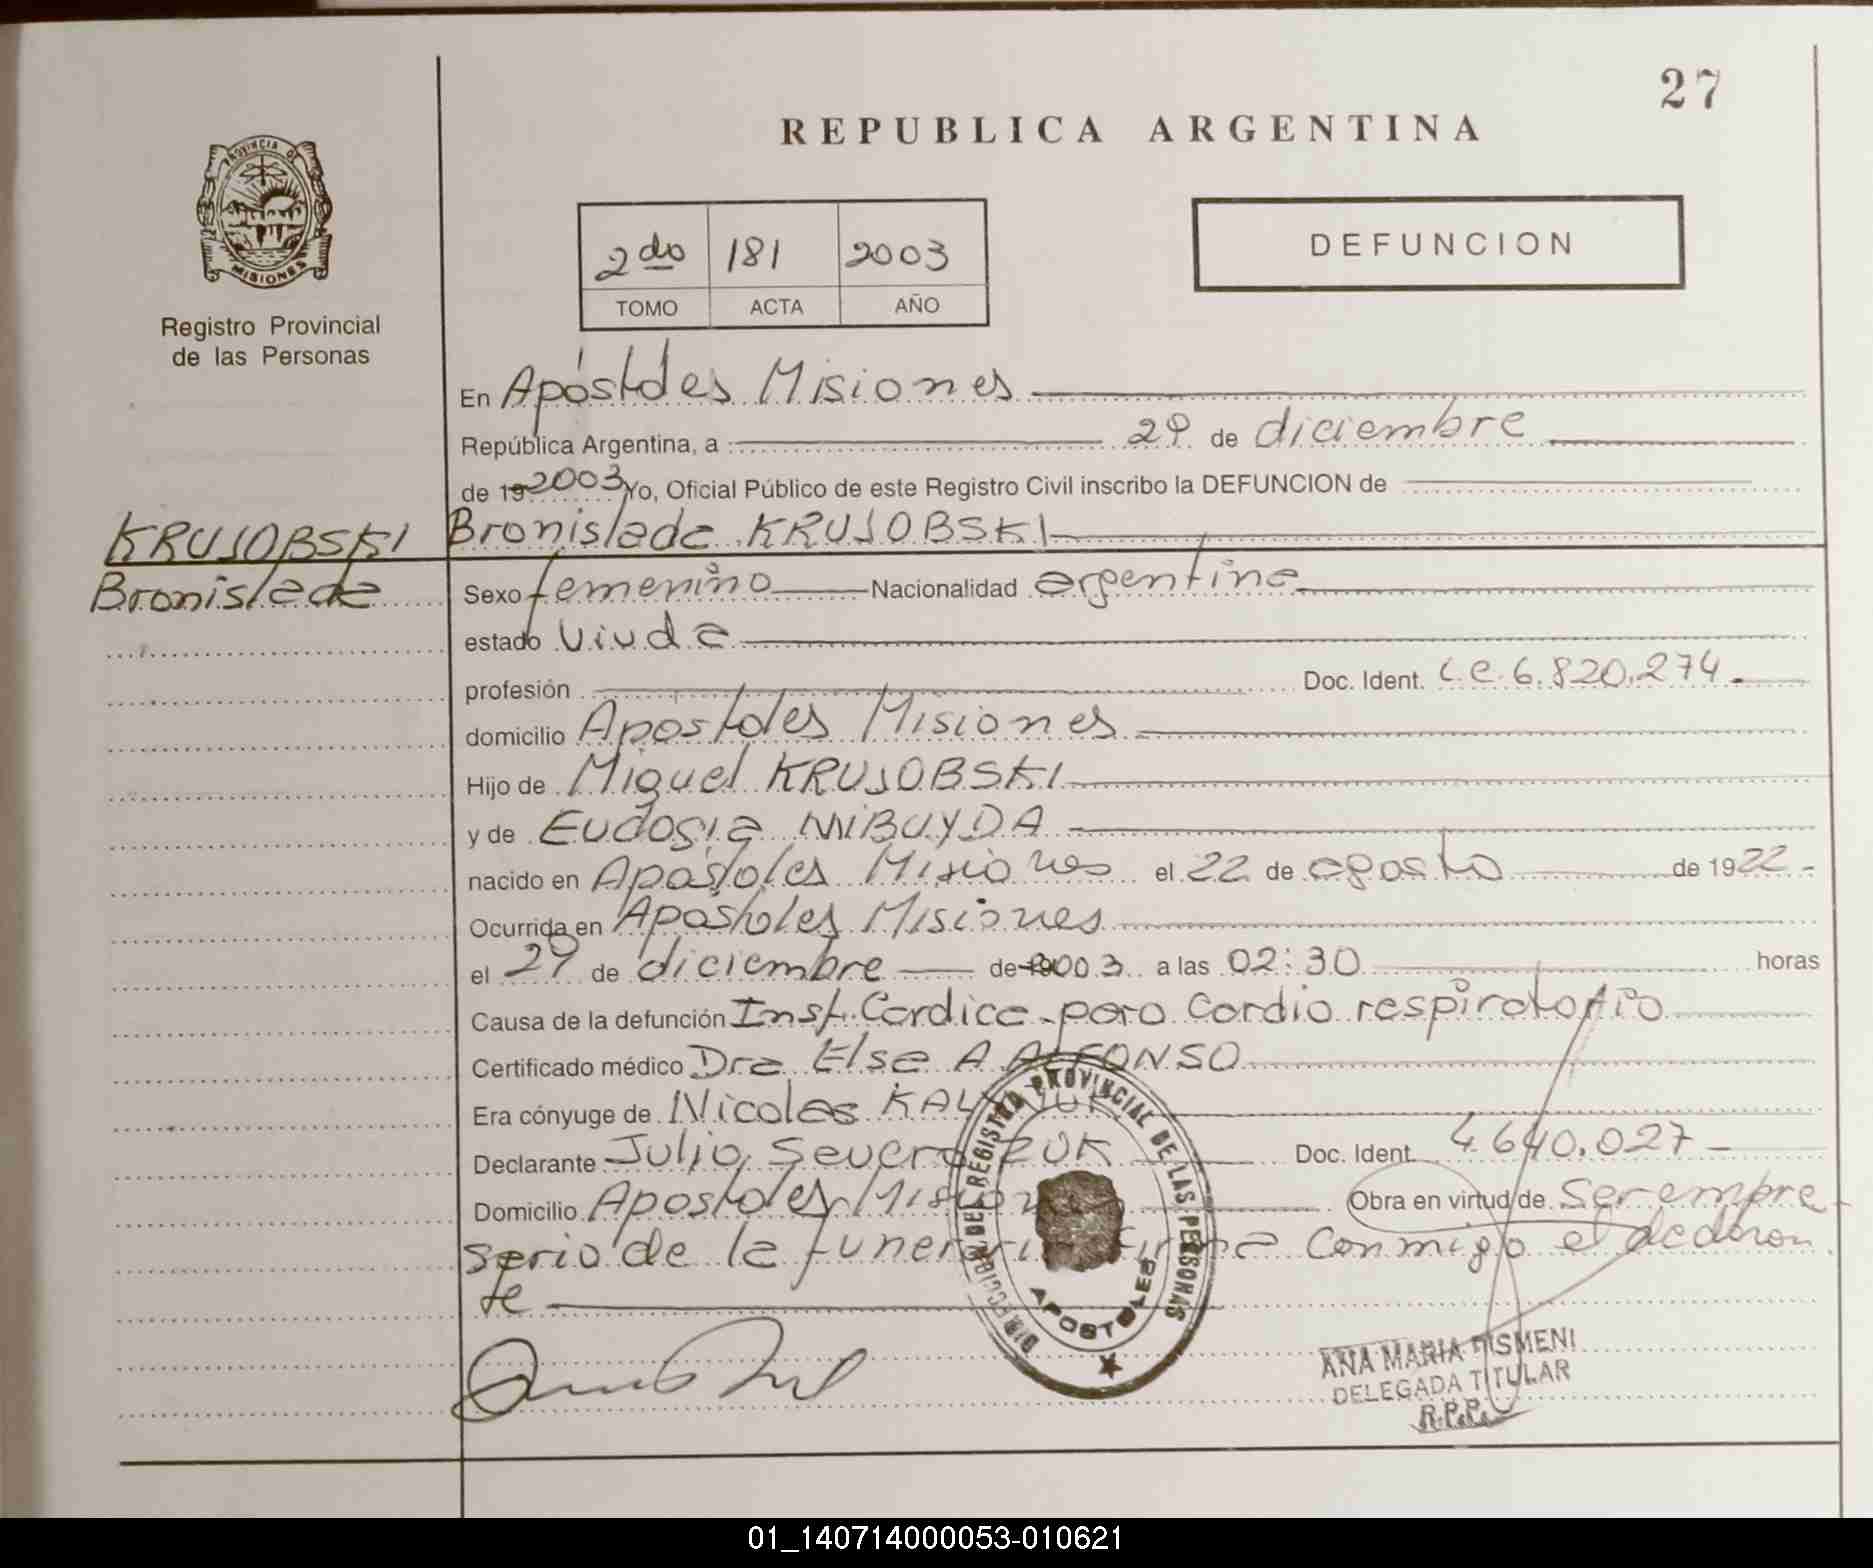 27
REPUBLICA ARGENTINA
PROVINCIA DE
MISIONES
Registro Provincial
de las Personas
2do 181 2003
TOMO ACTA AÑO
DEFUNCION
En Apóstoles Misiones
República Argentina, a 29 de diciembre
de 19 2003 Yo, Oficial Público de este Registro Civil inscribo la DEFUNCION de
KRUJOBSKI Bronislada KRUJOBSKI
Bronislada
Sexo femenino Nacionalidad argentina
estado viuda
profesión Doc. Ident. L.C. 6.820.274.
domicilio Apostoles Misiones
Hijo de Miguel KRUJOBSKI
y de Eudosia
nacido en Apóstoles Misiones el 22 de agosto de 1922 -
Ocurrida en Apóstoles Misiones
el 29 de diciembre de 2003 a las 02:30 horas
Causa de la defunción Insf. Cardica - paro Cardio respiratorio
Certificado médico Dra Elsa A ALFONSO
Era cónyuge de Nicolas
Declarante Julio Severo ZUK Doc. Ident. 4.640.027 -
Domicilio Apostoles Misiones Obra en virtud de ser empre-
sario de la funeraria firma conmigo el declaran
te
DIRECCION DEL REGISTRO PROVINCIAL DE LAS PERSONAS
APOSTOLES
ANA MARIA PISMENI
DELEGADA TITULAR
R.P.P.
01_140714000053-010621